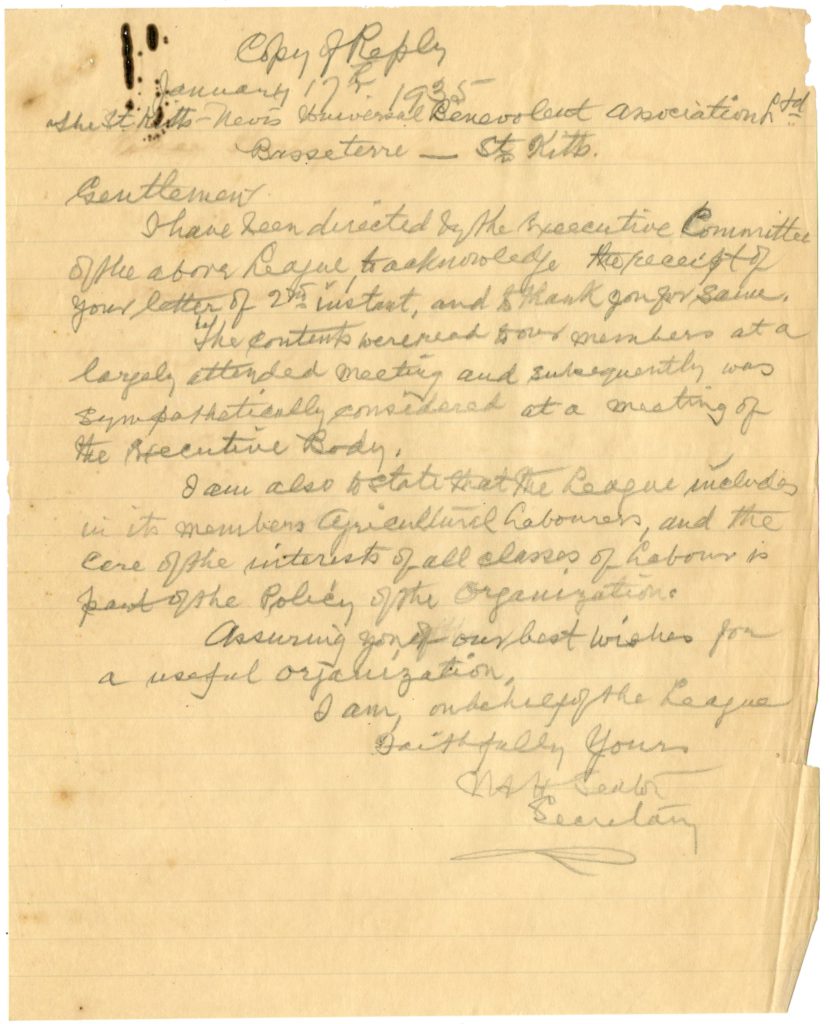 Copy of Reply
January 17th 1935
The St. Kitts-Nevis Universal Benevolent Association Ltd
Basseterre — St. Kitts.
Gentlemen
I have been directed by the Exeecutive Committee
of the above League, to acknowledge the receipt of
your letter of 2nd instant, and to thank you for same.
The contents were read to our members at a
largely attended meeting and subsequently was
sympathetically considered at a meeting of
the Executive Body.
I am also to state that the League includes
in its members Agricultural Labourers, and the
care of the interests of all classes of Labour is
part of the Policy of the Organization.
Assuring you of our best wishes for
a useful organization,
I am, on behalf of the League
Faithfully Yours
Seaton
Secretary